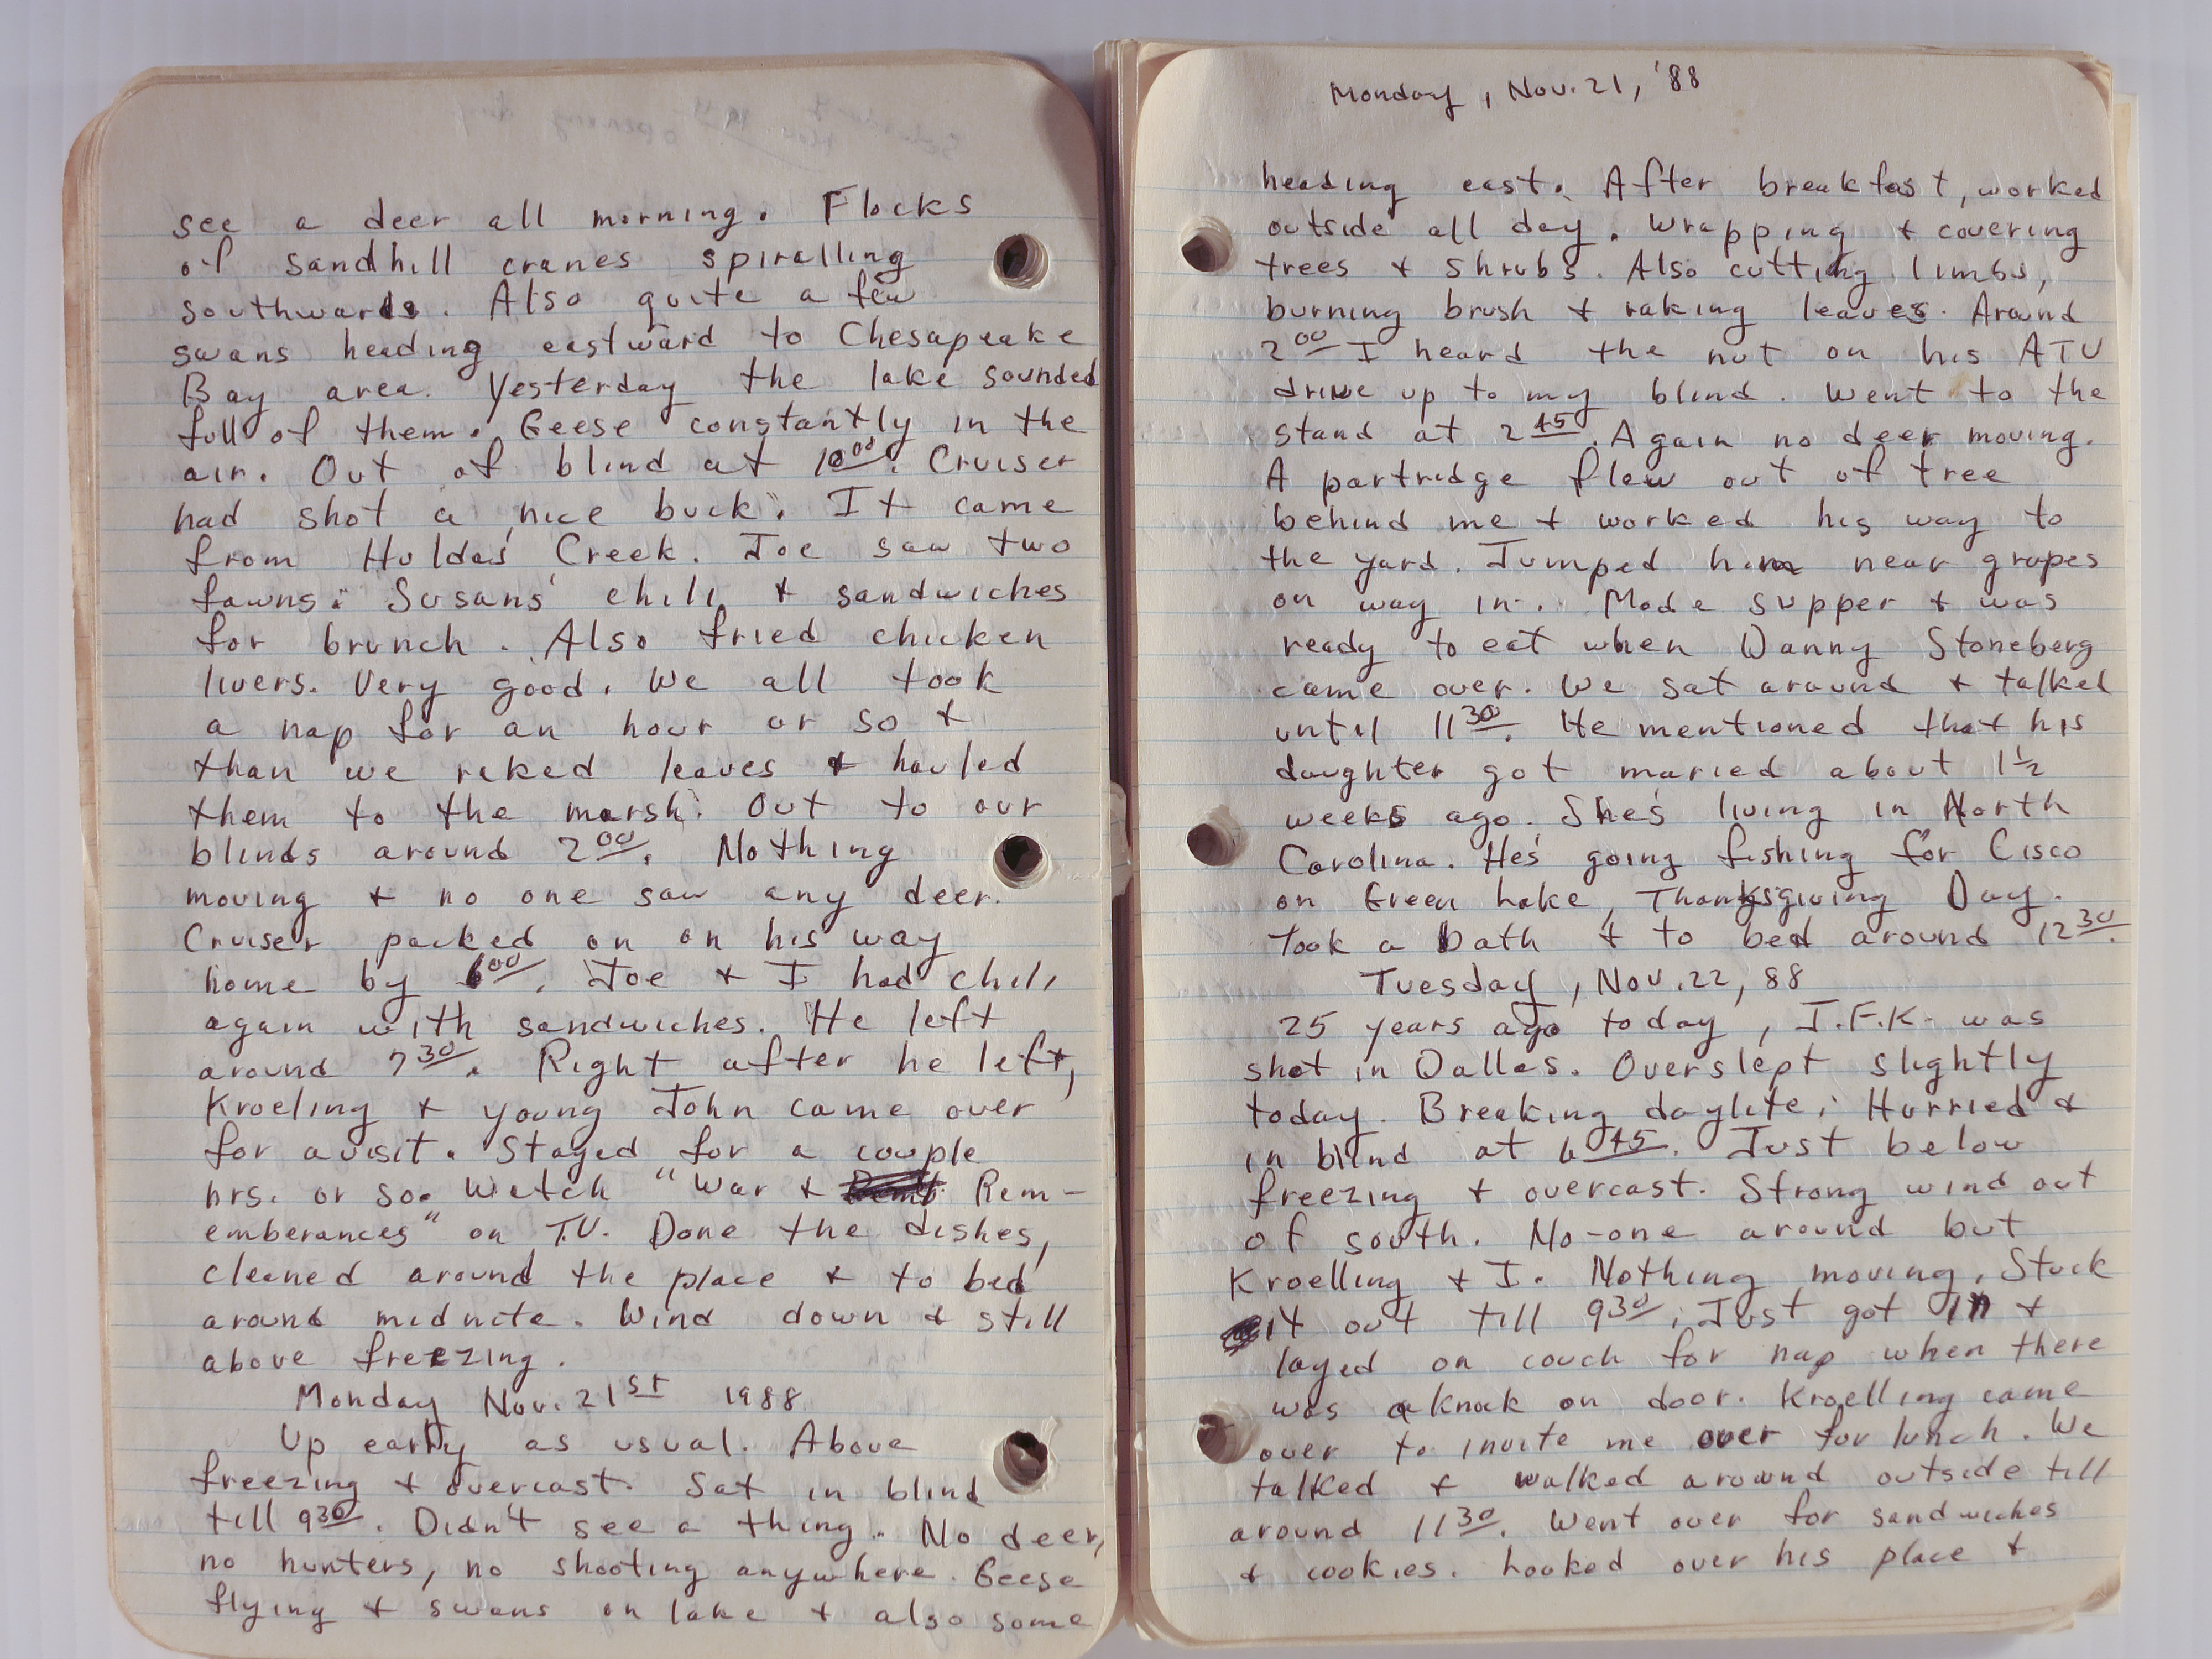 see a deer all morning. Flocks
of sandhill cranes spiralling
southwards. Also quite a few
swans heading eastward to Chesapeake
Bay area. Yesterday the lake sounded
full of them. Geese constantly in the
air. Out of blind at 10⁰⁰. Cruiser
had shot a nice buck. It came
from Huldas' Creek. Joe saw two
fawns. Susans' chili & sandwiches
for brunch. Also fried chicken
livers. Very good. We all took
a nap for an hour or so &
than we raked leaves & hauled
them to the marsh. Out to our
blinds around 2⁰⁰. Nothing
moving & no one saw any deer.
Cruiser packed on on his way
home by 6⁰⁰. Joe & I had chili
again with sandwiches. He left
around 7³⁰. Right after he left,
Kroeling & young John came over
for a visit. Stayed for a couple
hrs. or so. Watch "War & Rem-
emberances" on T.V. Done the dishes,
cleaned around the place & to bed
around midnite. Wind down & still
above freezing.
Monday Nov. 21ST 1988
Up early as usual. Above
freezing & overcast. Sat in blind
till 9³⁰. Didn't see a thing. No deer,
no hunters, no shooting anywhere. Geese
flying & swans on lake & also some
Monday, Nov. 21, '88
heading east. After breakfast, worked
outside all day. Wrapping & covering
trees & shrubs. Also cutting limbs,
burning brush & raking leaves. Around
2⁰⁰ I heard the nut on his ATV
drive up to my blind. Went to the
stand at 2⁴⁵. Again no deer moving.
A partridge flew out of tree
behind me & worked his way to
the yard. Jumped him near grapes
on way in. Made supper & was
ready to eat when Danny Stoneberg
came over. We sat around & talked
until 11³⁰. He mentioned that his
daughter got maried about 1½
weeks ago. She's living in North
Carolina. He's going fishing for Cisco
on Green Lake, Thanksgiving Day.
Took a bath & to bed around 12³⁰.
Tuesday, Nov. 22, 88
25 years ago today, J.F.K. was
shot in Dallas. Overslept slightly
today. Breaking daylite. Hurried &
in blind at 6⁴⁵. Just below
freezing & overcast. Strong wind out
of south. No-one around but
Kroelling & I. Nothing moving. Stuck
it out till 9³⁰. Just got in &
layed on couch for nap when there
was a knock on door. Kroelling came
over to invite me over for lunch. We
talked & walked around outside till
around 11³⁰. Went over for sandwiches
& cookies. Looked over his place &